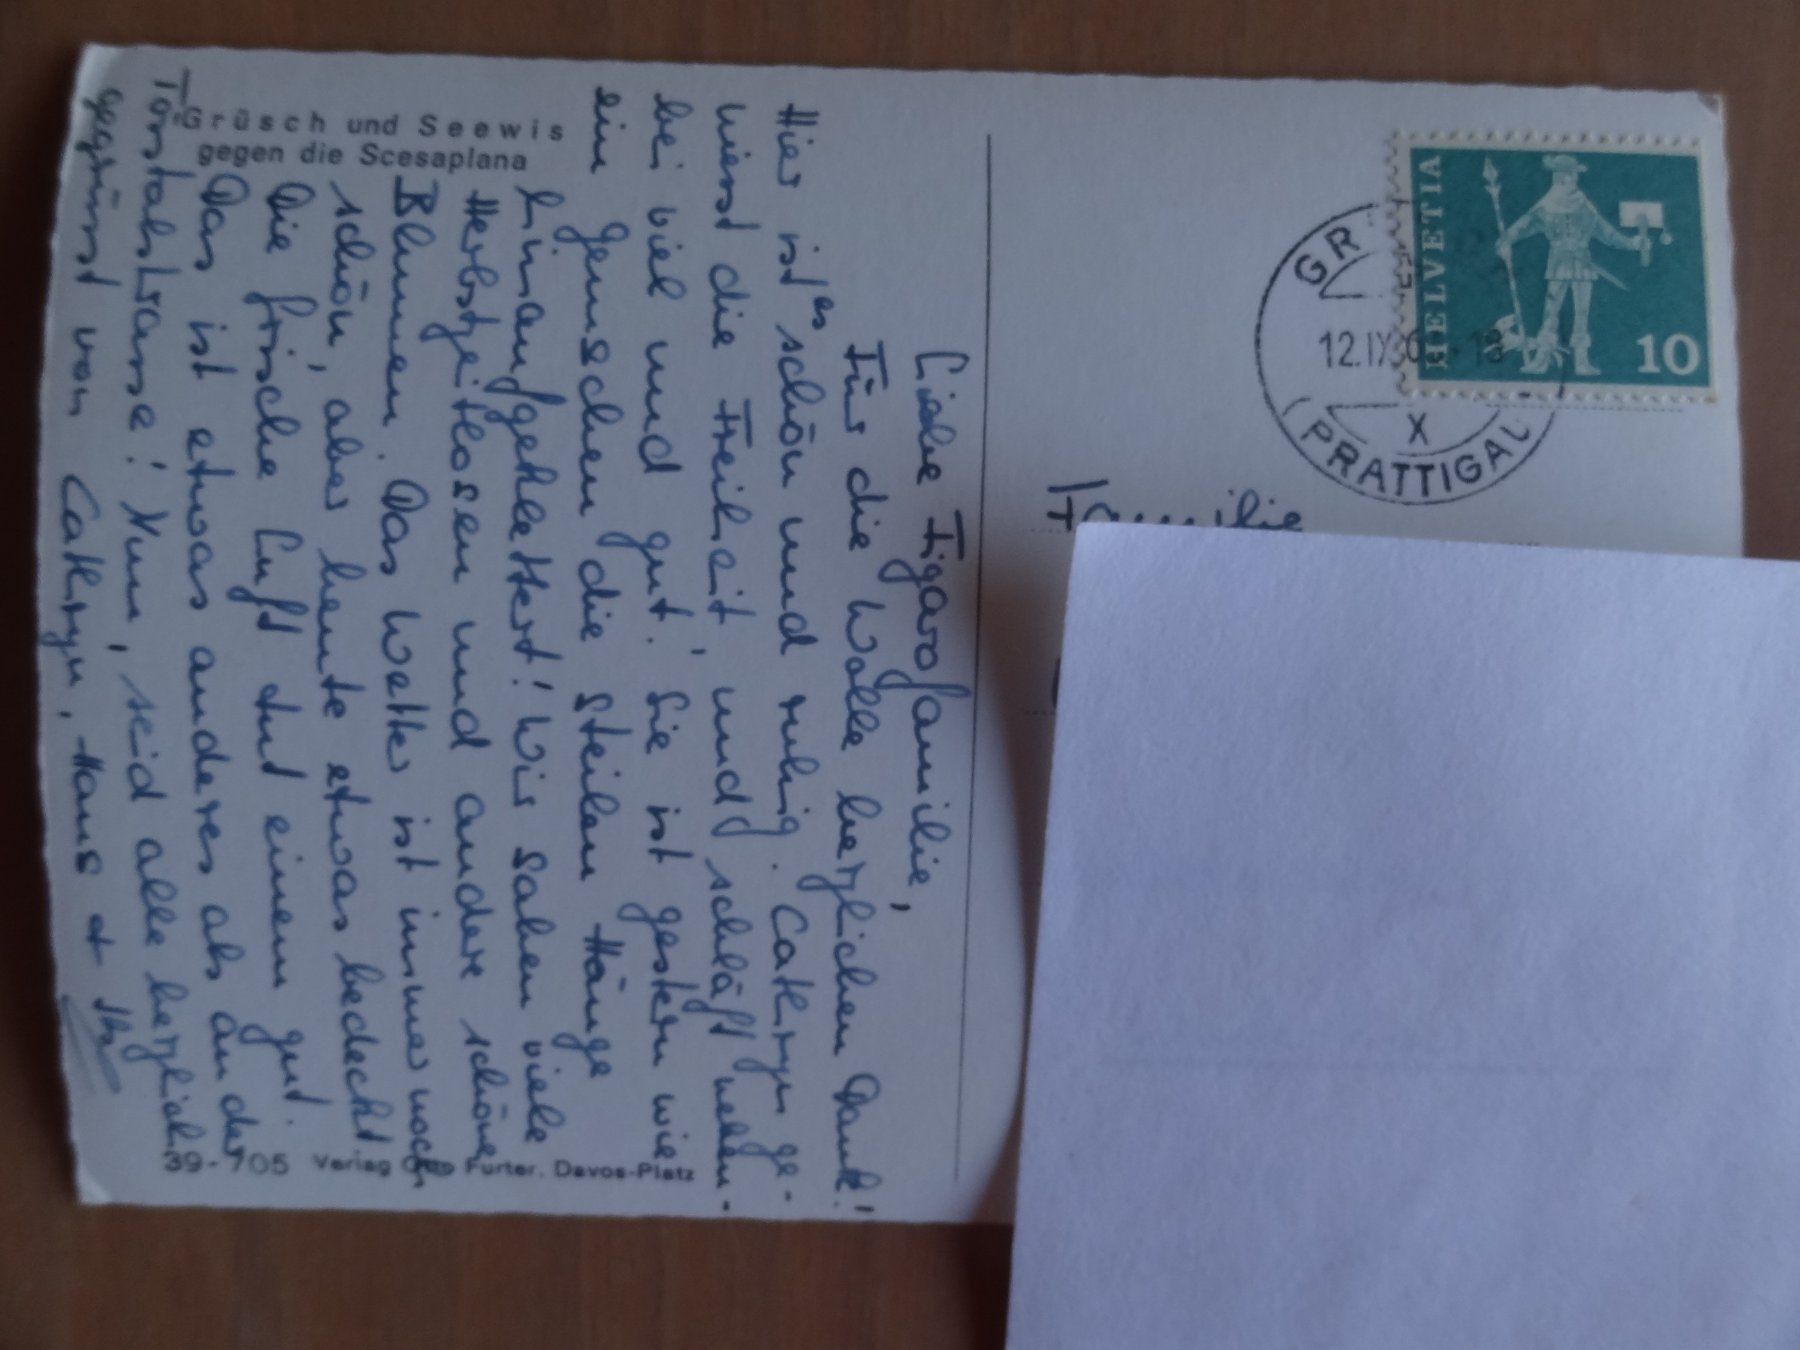 Grüsch und Seewis
gegen die Scesaplana
Liebe Figarofamilie,
Für die Wolle herzlichen Dank!
Hier ist es schön und ruhig. Cathryn ge-
niesst die Freiheit, und schläft neben-
bei viel und gut. Sie ist gestern wie
ein Gemschen die steilen Hänge
hinaufgeklettert! Wir sahen viele
Herbstzeitlosen und andere schöne
Blumen. Das Wetter ist immer noch
schön, aber heute etwas bedeckt
Die frische Luft tut einem gut.
Das ist etwas anderes als an der
Tönstalstrasse! Nun, seid alle herzlich
gegrüsst von Cathryn, Hans +
39-705 Verlag Furter, Davos-Platz
HELVETIA
10
GR
12.IX
X
(PRÄTTIGAU
Familie